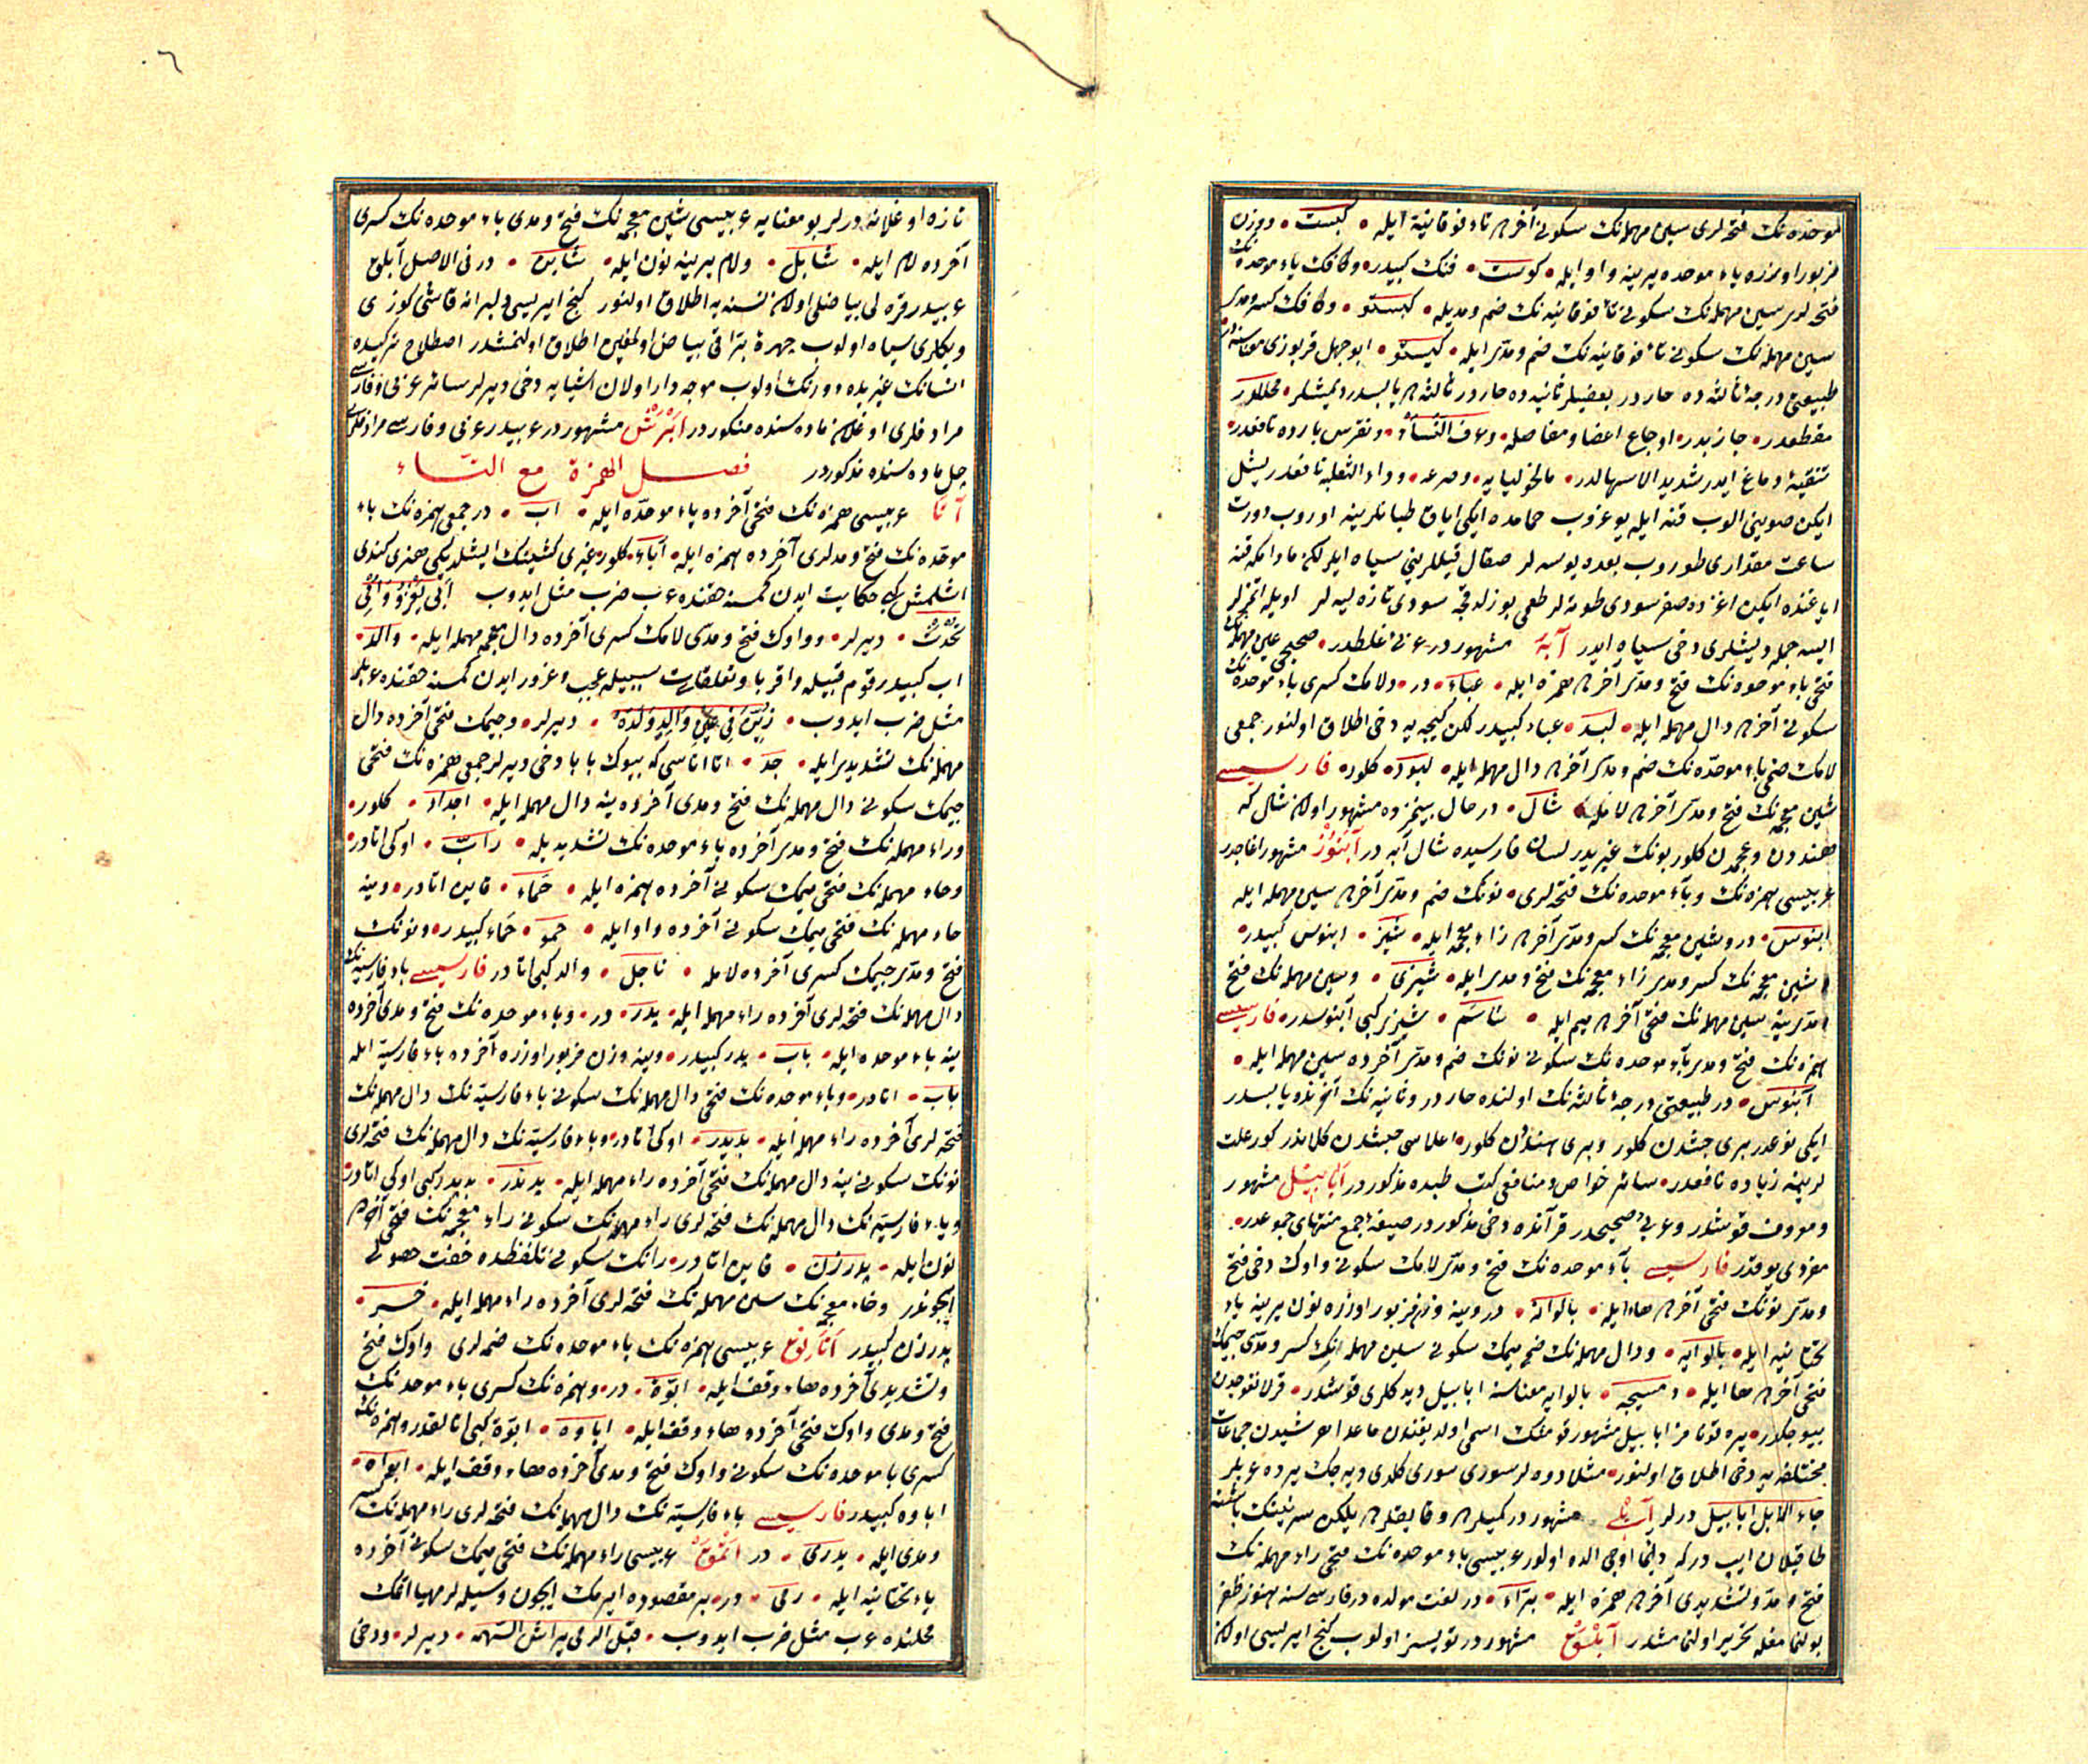 موحده‌نك فتحه‌لری سین مهمله‌نك سكونی آخره تاء فوقانیه ایله • كبست • ووزن
مزبور اوزره یاء موحده یرینه واو ایله • كوست • فنك كبیدر • وكافك باء موحده‌نك
فتحه‌لری سین مهمله‌نك سكونی تاء فوقانیه‌نك ضم ومدیله • كبستو • وكافك كسر ومدی
سین مهمله‌نك سكونی تاء فوقانیه‌نك ضم ومدی ایله • كیستو • ابوجهل قرپوزی معناسنه
طبیعتی درجهٔ ثالثه‌ده حار در بعضیلر ثانیه‌ده حار در ثالثه‌ده یابسدر دیمشلر • محللدر
مقطعدر • جاذبدر • اوجاع اعضا ومفاصله • وعرق النساء • ونقرس بارده نافعدر •
تنقیهٔ دماغ ایدر شدید الاسهالدر • مالخولیایه • وصرعه • وداء الثعلبه نافعدر یشل
ایكن صویینی الوب قنه ایله یوغروب حمامده ایكی ایاق طبانلرینه اوروب دورت
ساعت مقداری طوروب بعده یوسه‌لر صقال قیللرینی سیاه ایلر لكن مادامكه قنه
ایاغنده ایكن اغزده صغر سودی طوته‌لر طعمی بوزلدقجه سودی تازه‌لیه‌لر اویله اتمزلر
ایسه جمله دیشلری دخی سیاه ایدر آبه مشهور در عربی غلطدر • صحیحی عین مهمله‌نك
فتحی باء موحده‌نك فتح ومدی آخره همزه ایله • عباء • در • ولامك كسری باء موحده‌نك
سكونی آخره دال مهمله ایله • لبد • عباء كبیدر لكن كیجه‌یه دخی اطلاق اولنور جمعی
لامك ضمی باء موحده‌نك ضم ومدی آخره دال مهمله ایله • لبود • كلور • فارسیسی
شین معجمه‌نك فتح ومدی آخره لامله • شال • در حال بیننمزده مشهور اولان شال كه
هنددن وعجمدن كلور بونك غیریدر لسان فارسیده شال آبه در آبنوز مشهور اغاجدر
عربیسی همزه‌نك وباء موحده‌نك فتحه‌لری • نونك ضم ومدی آخره سین مهمله ایله
ابنوس • در وشین معجمه‌نك كسر ومدی آخره زاء معجمه ایله • شیز • ابنوس كبیدر •
شین معجمه‌نك كسر ومدی زاء معجمه‌نك فتح ومدی ایله • شیزی • وسین مهمله‌نك فتح
ومدی ینه سین مهمله‌نك فتحی آخره میم ایله • ساسم • شیزی كبی آبنوسدر • فارسیسی
همزه‌نك فتح ومدی باء موحده‌نك سكونی نونك ضم ومدی آخرده سین مهمله ایله •
آبنوس • در طبیعتی درجهٔ ثالثه‌نك اولنده حار در وثانیه‌نك آخرنده یابسدر
ایكی نوعدر بری حبشدن كلور وبری هنددن كلور • اعلاسی حبشدن كلاندر كوز علت
لرینه زیاده نافعدر • سائر خواص ومنافعی كتب طبده مذكور در آبابیل مشهور
ومعروف قوشدر وعربی صحیحدر قرآنده دخی مذكور در صیغهٔ جمع منتهای جموعدر •
مفردی یوقدر فارسیسی باء موحده‌نك فتح ومدی لامك سكونی واوك دخی فتح
ومدی نونك فتحی آخره هاء ایله • بالوانه • در وینه وزن مزبور اوزره نون یرینه یاء
تحتانیه ایله • بالوایه • ودال مهمله‌نك ضمی میمك سكونی سین مهمله‌نك كسر ومدی جیمك
فتحی آخره هاء ایله • دمسیجه • بالوایه معناسنه ابابیل دیدكلری قوشدر • قرلانغوجدن
بیوجكدر • یره قونامز ابابیل مشهور قوشك اسمی اولدیغندن ماعدا هر شیدن جماعات
مختلفه‌یه دخی اطلاق اولنور • مثلا دوه‌لر سوری سوری كلدی دیه‌جك یرده عربلر
جاء الابل ابابیل درلر آبلی مشهور در كمیلره وقایقلره یلكن سرنینك باشنه
طاقیلان ایپ دركه دائما اوجی الده اولور عربیسی باء موحده‌نك فتحی راء مهمله‌نك
فتح ومد وتشدیدی آخره همزه ایله • براء • در لغت مولده در فارسیسنه هنوز ظفر
بولنمامغله تحریر اولنمامشدر آبلوق مشهور در تویسز اولوب كنج ایریسی اولان
٠٦
تازه اوغلانه درلر بو معنایه عربیسی شین معجمه‌نك فتح ومدی باء موحده‌نك كسری
آخرده لام ایله • شابل • ولام یرینه نون ایله • شابن • در فی الاصل آبلق
عربیدر قره‌لی بیاضلی اولان نسنه‌یه اطلاق اولنور كنج ایریسی دلبرانه قاشی كوزی
وبكلری سیاه اولوب چهره براقی بیاض اولمغین اطلاق اولنمشدر اصطلاح تركیده
انسانك غیریده دورنك اولوب موجه‌دار اولان اشیایه دخی دیرلر سائر عربی وفارسی
مرادفلری اوغلان ماده‌سنده مذكور در ابرش مشهور در عربیدر عربی وفارسی مرادفلری
چل ماده‌سنده مذكوردر فصل الهمزة مع التاء
آتا عربیسی همزه‌نك فتحی آخرده باء موحده ایله • اب • در جمعی همزه‌نك باء
موحده‌نك فتح ومدلری آخرده همزه ایله • آباء • كلور • غیری كشینك ایشلدیكی هنری كندی
اشلمش كبی حكایت ایدن كمسنه حقنده عرب ضرب مثل ایدوب ابی یغزو وامی
تحدث • دیرلر • وواوك فتح ومدی لامك كسری آخرده دال مهمله ایله • والد •
اب كبیدر قوم قبیله واقربا وتعلقات سببیله عجب وغرور ایدن كمسنه حقنده عربلر
مثل ضرب ایدوب • زین فی عین والد ولده • دیرلر • وجیمك فتحی آخرده دال
مهمله‌نك تشدیدی ایله • جد • اتا اناسی كه بیوك بابا دخی دیرلر جمعی همزه‌نك فتحی
جیمك سكونی دال مهمله‌نك فتح ومدی آخرده ینه دال مهمله ایله • اجداد • كلور •
وراء مهمله‌نك فتح ومدی آخرده باء موحده‌نك تشدیدیله • راب • اوكی اتادر •
وحاء مهمله‌نك فتحی میمك سكونی آخرده همزه ایله • حماء • قاین اتادر • وینه
حاء مهمله‌نك فتحی میمك سكونی آخرده واو ایله • حمو • حماء كبیدر • ونونك
فتح ومدی جیمك كسری آخرده لامله • ناجل • والد كبی اتادر فارسیسی باء فارسیه‌نك
دال مهمله‌نك فتحه‌لری آخرده راء مهمله ایله • پدر • در • وباء موحده‌نك فتح ومدی آخرده
ینه باء موحده ایله • باب • پدر كبیدر • وینه وزن مزبور اوزره آخرده باء فارسیه ایله
باپ • اتادر • وباء موحده‌نك فتحی دال مهمله‌نك سكونی باء فارسیه‌نك دال مهمله‌نك
فتحه‌لری آخرده راء مهمله ایله • بدپدر • اوكی اتادر • وباء فارسیه‌نك دال مهمله‌نك فتحه‌لری
نونك سكونی ینه دال مهمله‌نك فتحی آخرده راء مهمله ایله • پدندر • بدپدر كبی اوكی اتادر •
وباء فارسیه‌نك دال مهمله‌نك فتحه‌لری راء مهمله‌نك سكونی زاء معجمه‌نك فتحی آخره
نون ایله • پدرزن • قاین اتادر • رانك سكونی تلفظده خفت حصولی
ایچوندر وخاء معجمه‌نك سین مهمله‌نك فتحه‌لری آخرده راء مهمله ایله • خسر •
پدرزن كبیدر اتالق عربیسی همزه‌نك باء موحده‌نك ضمه‌لری واوك فتح
وتشدیدی آخرده هاء وقف ایله • ابوة • در • وهمزه‌نك كسری باء موحده‌نك
فتح ومدی واوك فتحی آخرده هاء وقف ایله • اباوه • ابوة كبی اتالقدر وهمزه‌نك
كسری باء موحده‌نك سكونی واوك فتح ومدی آخرده هاء وقف ایله • ابواه •
اباوه كبیدر فارسیسی باء فارسیه‌نك دال مهمله‌نك فتحه‌لری راء مهمله‌نك كسر
ومدی ایله • پدری • در اتمق عربیسی راء مهمله‌نك فتحی میمك سكونی آخرده
یاء تحتانیه ایله • رمی • در • بر مقصوده ایرمك ایچون وسیله‌لر مهیا اتمك
محلنده عرب مثل ضرب ایدوب • قبل الرمی یراش السهم • دیرلر • ودخی